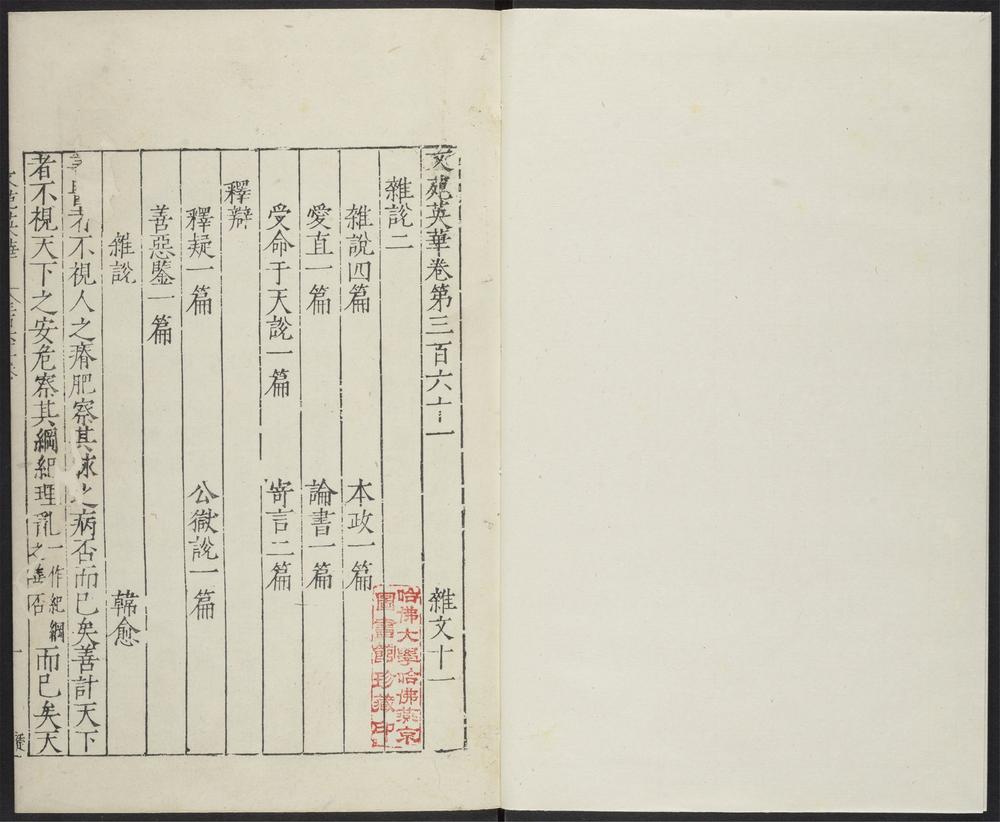 文苑英華卷第三百六十一 雜文十一
雜說二
雜說四篇 本政一篇
愛直一篇 論書一篇
受命于天說一篇 寄言二篇
釋辯
釋疑一篇 公嶽說一篇
善惡鑒一篇
雜說 韓愈
者不視人之瘠肥察其脉之病否而已矣善計天下
者不視天下之安危察其綱紀理亂一作紀綱之善否而已矣天
哈佛大學哈佛燕京
圖書館珍藏印